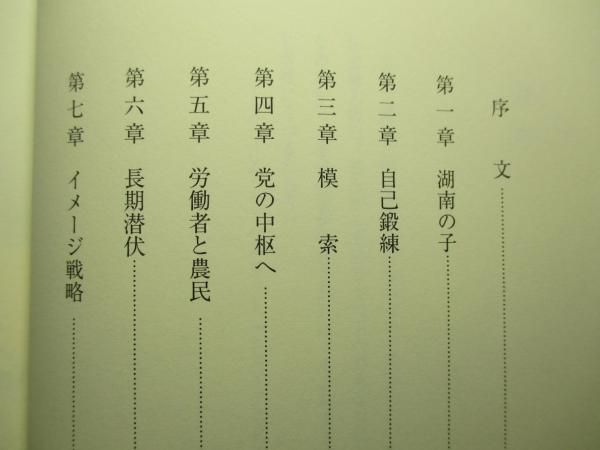 序文
第一章 湖南の子
第二章 自己鍛練
第三章 模索
第四章 党の中枢へ
第五章 労働者と農民
第六章 長期潜伏
第七章 イメージ戦略